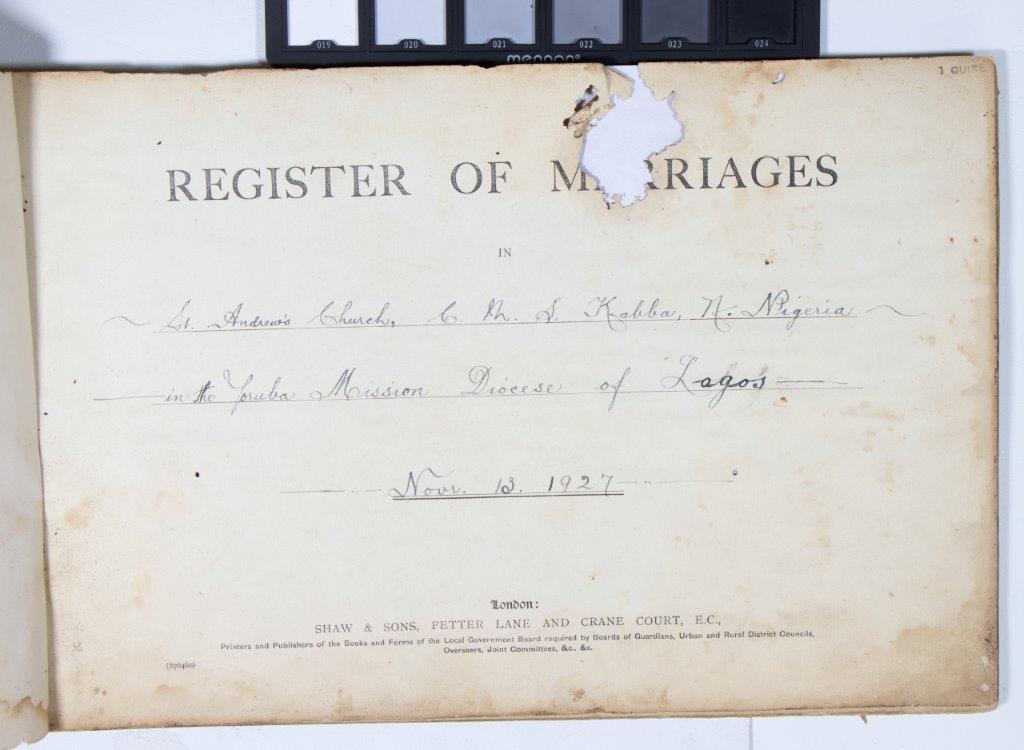 019 020 021 022 023 024
1 QUIRE
REGISTER OF M RRIAGES
IN
St. Andrew's Church, C. M. S. Kabba, N. Nigeria
in the Yoruba Mission Diocese of Lagos
Novr. 13. 1927
London:
SHAW & SONS, FETTER LANE AND CRANE COURT, E.C.,
Printers and Publishers of the Books and Forms of the Local Government Board required by Boards of Guardians, Urban and Rural District Councils,
Overseers, Joint Committees, &c., &c.